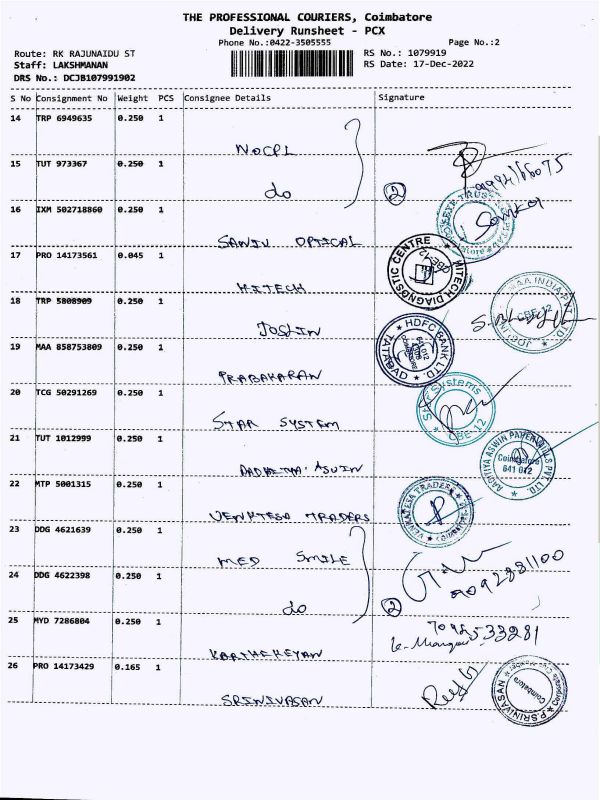 THE PROFESSIONAL COURIERS, Coimbatore
Delivery Runsheet - PCX
Phone No.:0422-3505555 Page No.:2
Route: RK RAJUNAIDU ST RS No.: 1079919
Staff: LAKSHMANAN RS Date: 17-Dec-2022
DRS No.: DCJB107991902
S No Consignment No Weight PCS Consignee Details Signature
14 TRP 6949635 0.250 1
NOCPL
15 TUT 973367 0.250 1
do 2
16 IXM 502718860 0.250 1
SANJU OPTICAL
17 PRO 14173561 0.045 1
HITECH DIAGNOSTIC CENTRE CBE-12
HITECH
18 TRP 5808909 0.250 1
JOSLIN
HDFC BANK LTD. TATABAD 641 012
19 MAA 858753809 0.250 1
PRABAKARAN
20 TCG 50291269 0.250 1
Star Systems CBE-12
STAR SYSTEM
21 TUT 1012999 0.250 1
Coimbatore 641 012
AADHITYA ASWIN
22 MTP 5001315 0.250 1
VENKATESA TRADERS
VENKTESA TRADERS
23 DDG 4621639 0.250 1
MED SMILE
9092881100
24 DDG 4622398 0.250 1
do 2
25 MYD 7286804 0.250 1
KARTHEKEYAN
26 PRO 14173429 0.165 1
P.SRINIVASAN Coimbatore
SRINIVASAN